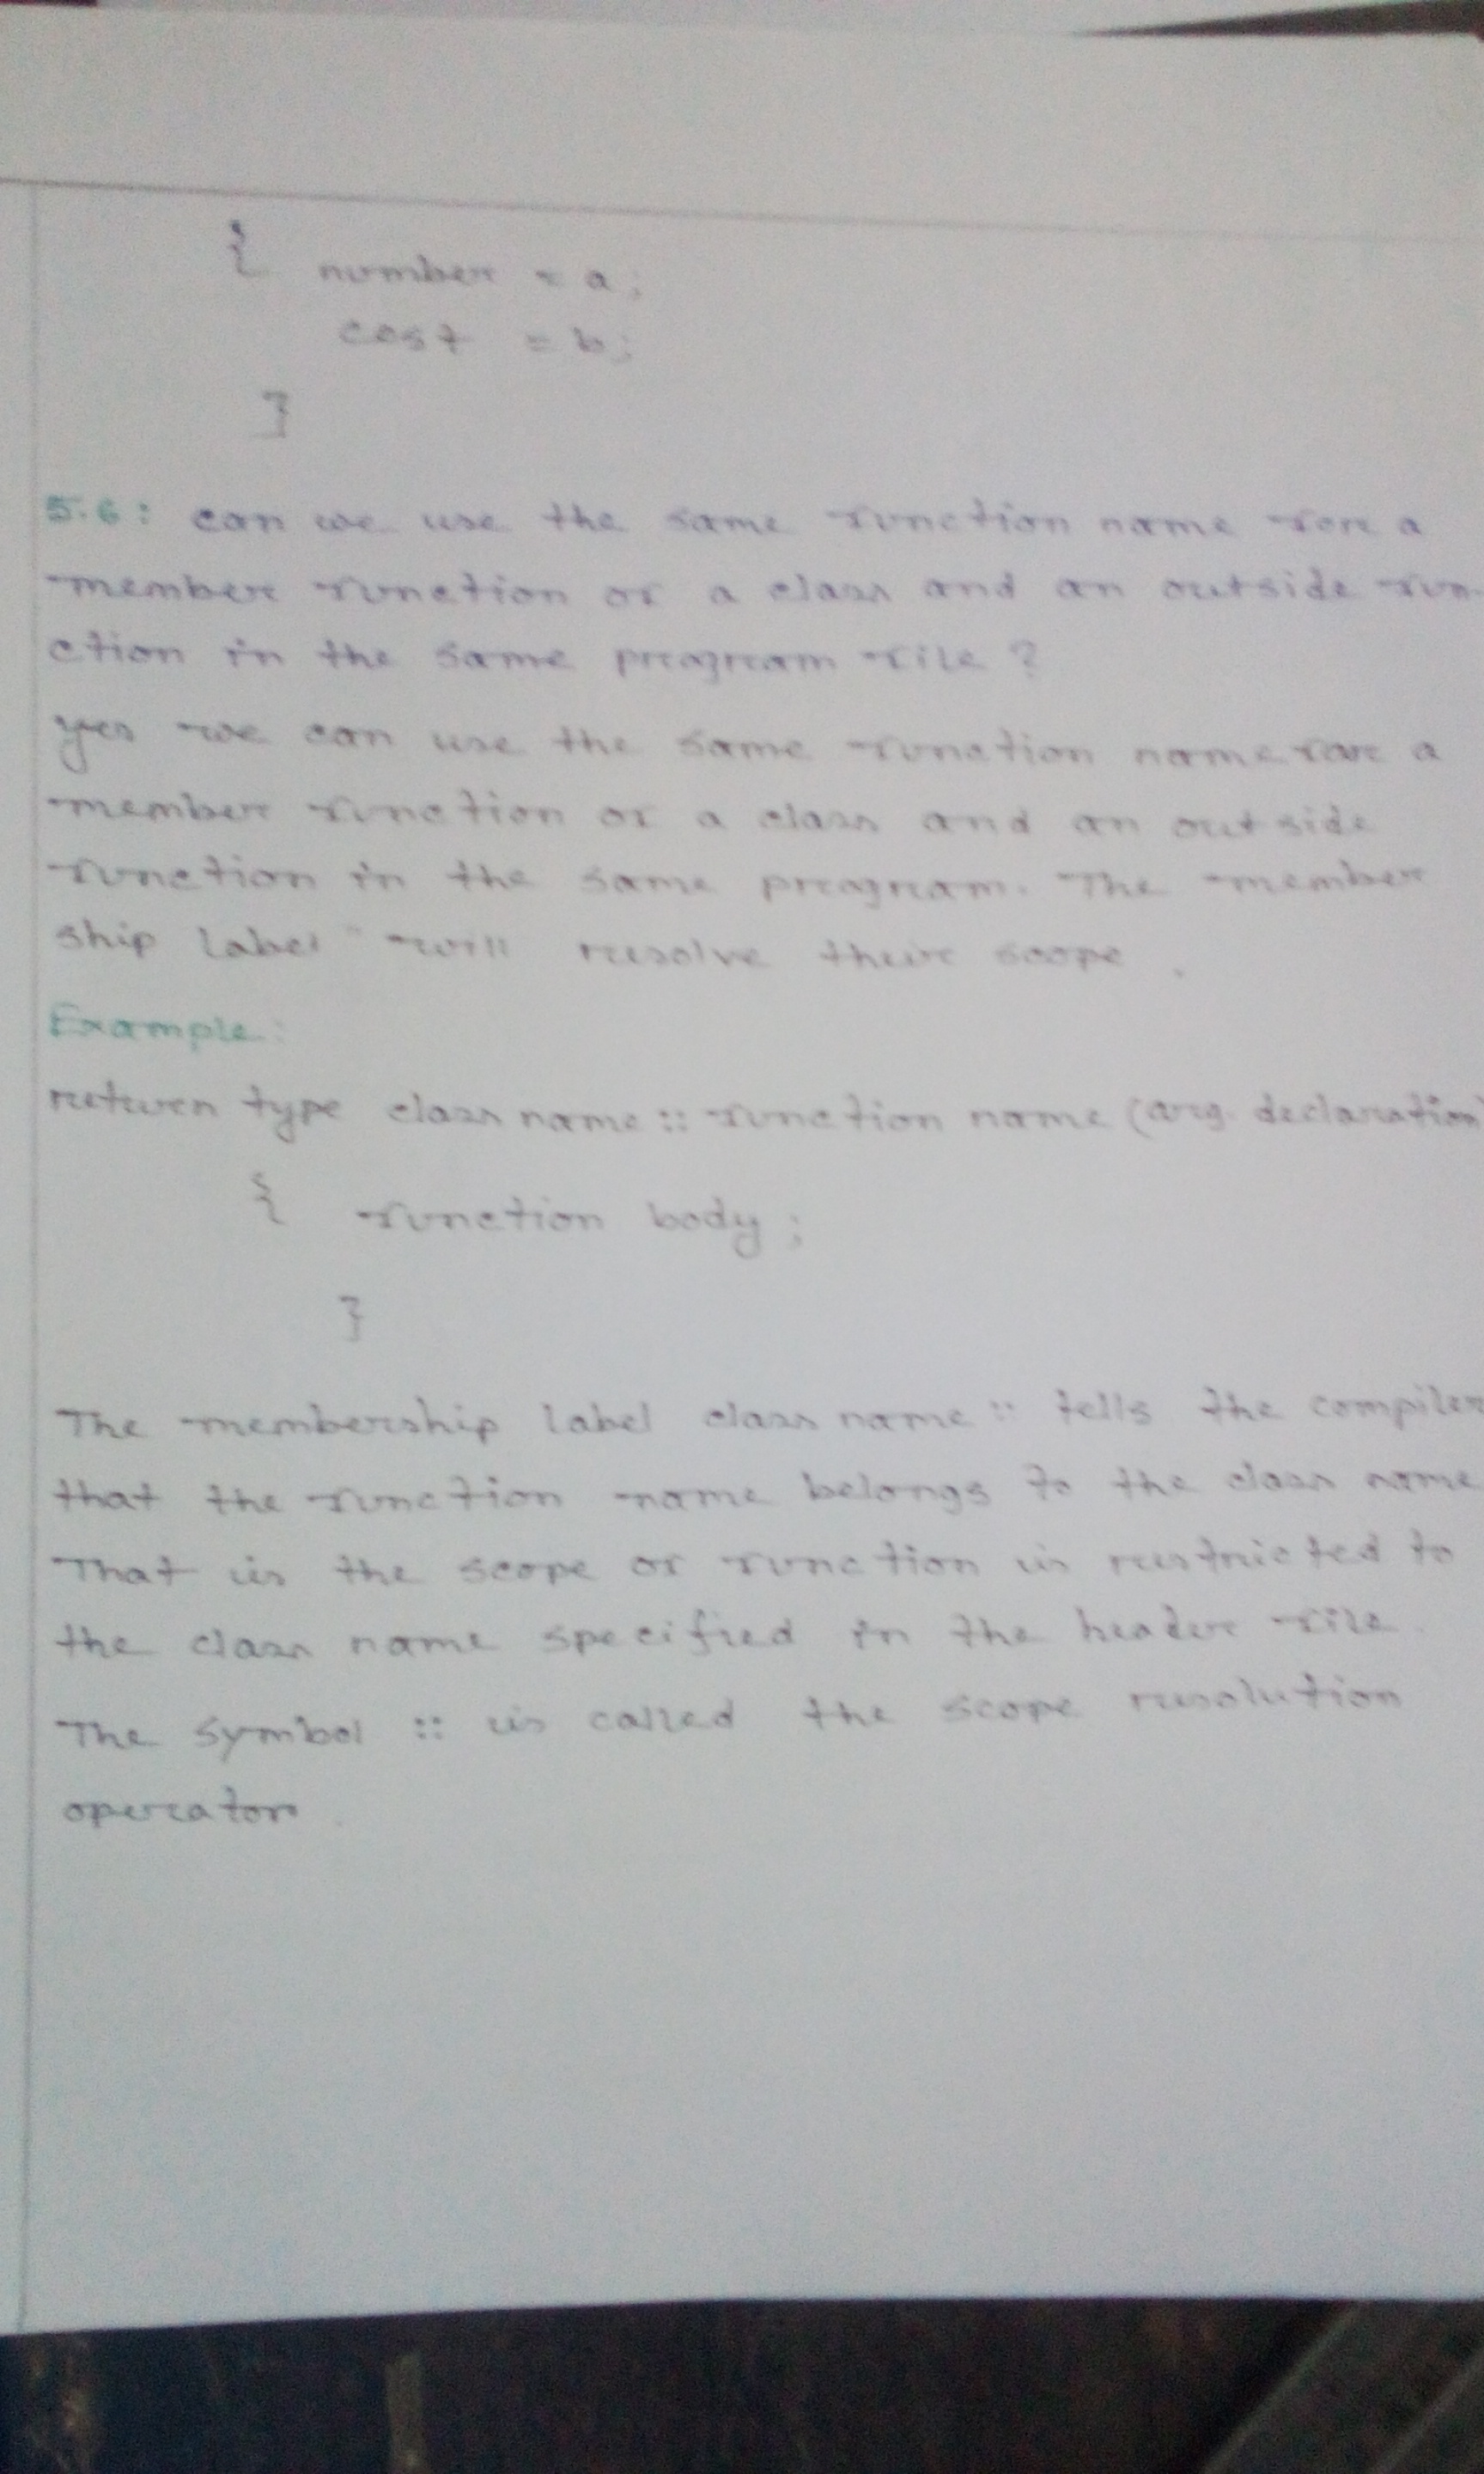 { number = a;
cost = b;
}
5.6: can we use the same function name for a
member function of a class and an outside fun-
ction in the same program file ?
yes we can use the same function name for a
member function of a class and an outside
function in the same program. The member
ship label will resolve their scope .
Example:
return type class name :: function name (arg. declaration)
{ function body ;
}
The membership label class name :: tells the compiler
that the function name belongs to the class name
That is the scope of function is restricted to
the class name specified in the header file.
The symbol :: is called the scope resolution
operator.